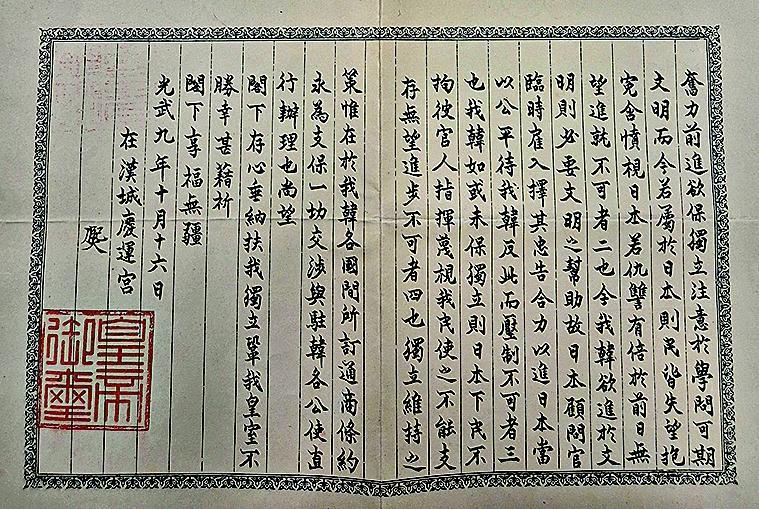 奮力前進欲保獨立注意於學問可期
文明而今若屬於日本則民皆失望抱
寃含憤視日本若仇讐有倍於前日無
望進就不可者二也今我韓欲進於文
明則必要文明之幫助故日本顧問官
臨時雇入擇其忠告合力以進日本當
以公平待我韓反此而壓制不可者三
也我韓如或未保獨立則日本下民不
拘彼官人指揮蔑視我民使之不能支
存無望進步不可者四也獨立維持之
策惟在於我韓各國間所訂通商條約
永為支保一切交涉與駐韓各公使直
行辦理也尚望
閣下存心垂納扶我獨立鞏我皇室不
勝幸甚藉祈
閣下享福無疆
光武九年十月十六日
在漢城慶運宮
㷩
皇帝
御璽